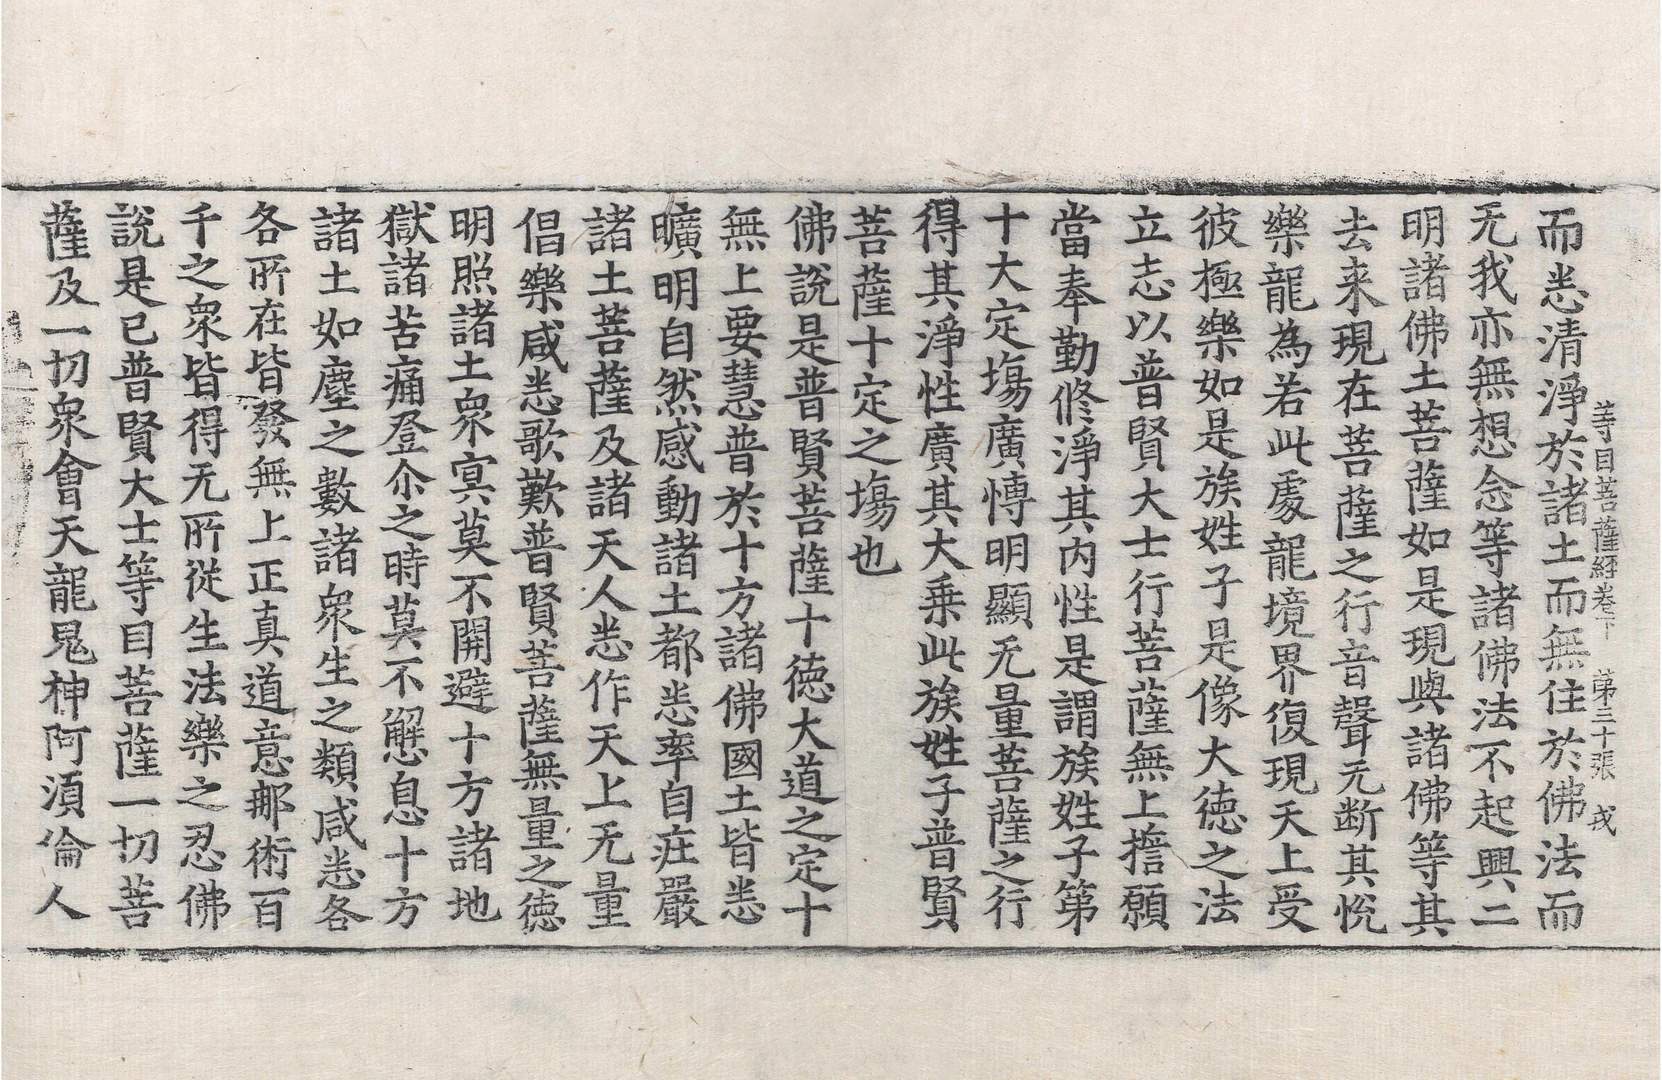 等目菩薩經卷下 第三十張 戎
而悉清淨於諸土而無住於佛法而
无我亦無想念等諸佛法不起興二
明諸佛土菩薩如是現與諸佛等其
去来現在菩薩之行音聲无断其恱
樂龍為若此處龍境界復現天上受
彼極樂如是族姓子是像大德之法
立志以普賢大士行菩薩無上擔願
當奉勤修淨其内性是謂族姓子第
十大定塲廣愽明顯无量菩薩之行
得其淨性廣其大乗此族姓子普賢
菩薩十定之塲也
佛說是普賢菩薩十德大道之定十
無上要慧普於十方諸佛國土皆悉
曠明自然感動諸土都悉率自㽵嚴
諸土菩薩及諸天人悉作天上无量
倡樂咸悉歌歎普賢菩薩無量之德
明照諸土衆㝠莫不開避十方諸地
獄諸苦痛登尒之時莫不懈息十方
諸土如塵之數諸衆生之類咸悉各
各所在皆發無上正真道意那術百
千之衆皆得无所從生法樂之忍佛
說是已普賢大士等目菩薩一切菩
薩及一切衆會天龍鬼神阿湏倫人